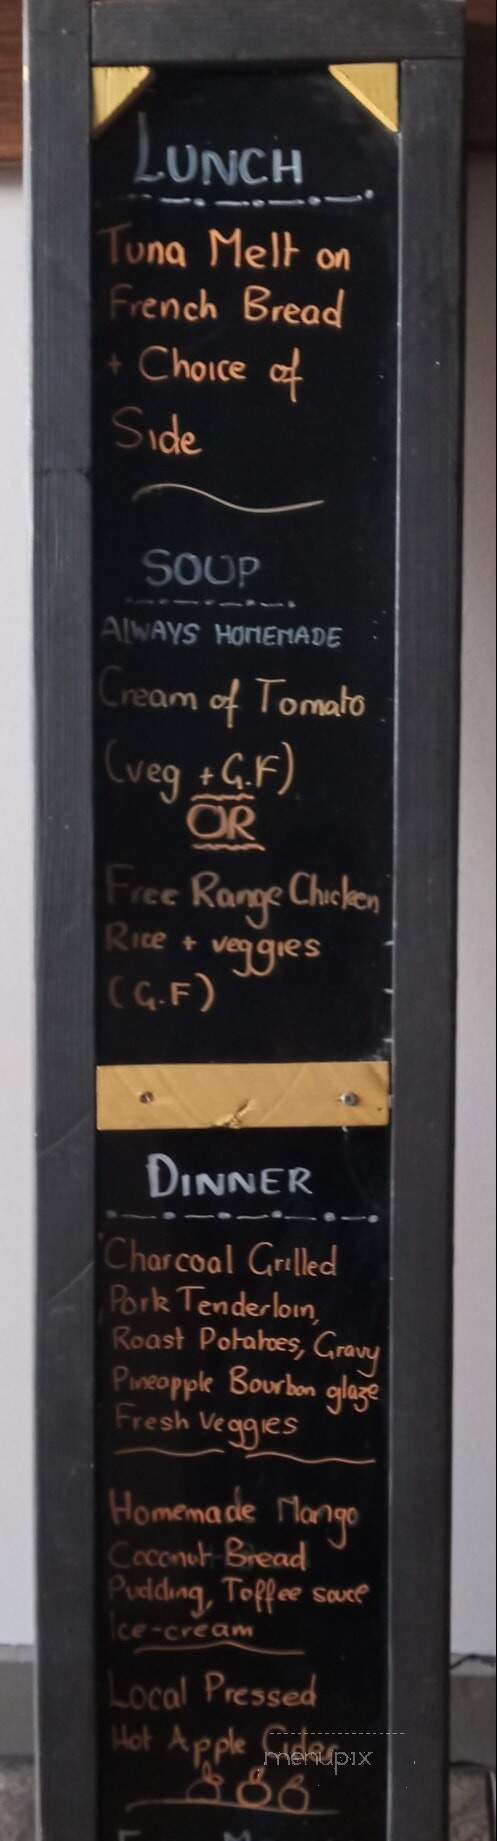 LUNCH
Tuna Melt on
French Bread
+ Choice of
Side
SOUP
ALWAYS HOMEMADE
Cream of Tomato
(veg + G.F)
OR
Free Range Chicken
Rice + veggies
(G.F)
DINNER
Charcoal Grilled
Pork Tenderloin,
Roast Potatoes, Gravy
Pineapple Bourbon glaze
Fresh Veggies
Homemade Mango
Coconut Bread
Pudding, Toffee sauce
Ice-cream
Local Pressed
Hot Apple Cider
menupix